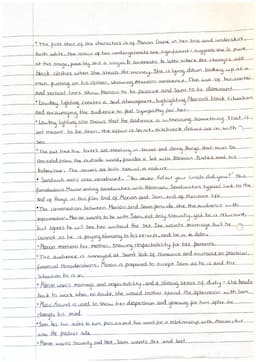 • The first shot of the characters is of Marion Crane in her bra and underskirt,
both white. The colour of her undergarments are significant & suggests she is pure
at this stage, possibly still a virgin & contrasts to later where she changes into
black clothes when she steals the money. She is lying down looking up at a
man putting on his clothes, showing Marion's innocence. The use of horizontal
and vertical lines show Marion to be passive and Sam to be dominant.
• Low key lighting creates a sad atmosphere, highlighting Marion's bleak situation
and encouraging the audience to feel sympathy for her.
• Low key lighting also shows that the audience is witnessing something that is
not meant to be seen. The affair is secret,
see.
• The pair find has lovers are meeting in
concealed from the outside world, provides a link with Norman Bates and his
The scenes are both sexual in nature.
• Sandwich motif was introduced. "You never did eat your lunch did you?" This
foreshadows Marion eating sandwiches with Norman. Sandwiches typical link to the
end of things, in this film end of Marion and Sam, end of Marion's life.
• The conversation between Marion and Sam provide the the audience with
information. Marion wants to be with Sam, not only sexually, and he is reluctant,
but agrees he will see her without the sex. She wants marriage but he
cannot as he is paying alimony to his ex-wife, and he is in debt.
• Marion mentions her Mother, showing respectability for her parents.
• The audience is annoyed at Sam's lack of romance and insistence on practical,
financial considerations. Marion is prepared to accept Sam as he is and the
situation he is in.
• Marion wants marriage and respectability, and a strong sense of duty. She heads
back to work when no doubt, she would rather spend the afternoon with Sam.
• Music (Sound) is used to show her depression and yearning for him after he
changes his mind.
• Sam has her sides to him, persuaded his want for a relationship with Marion, but
also the
• Marion wants Security and Sex, Sam wants Sex and